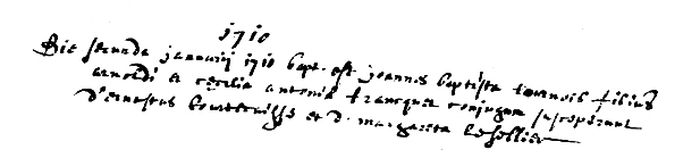 1710
Die secunda januarij 1710 bapt. est joannes baptista tournois filius
arnoldi et cecilia antonia francquet conjugum susceperunt
d'ernestus et d. margareta